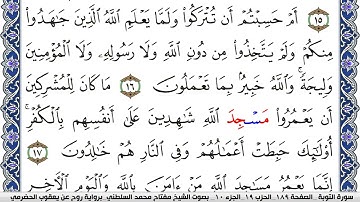 ١٥ أَمْ حَسِبْتُمْ أَن تُتْرَكُوا۟ وَلَمَّا يَعْلَمِ ٱللَّهُ ٱلَّذِينَ جَٰهَدُوا۟
مِنكُمْ وَلَمْ يَتَّخِذُوا۟ مِن دُونِ ٱللَّهِ وَلَا رَسُولِهِۦ وَلَا ٱلْمُؤْمِنِينَ
وَلِيجَةً ۚ وَٱللَّهُ خَبِيرٌۢ بِمَا تَعْمَلُونَ ١٦ مَا كَانَ لِلْمُشْرِكِينَ
أَن يَعْمُرُوا۟ مَسْجِدَ ٱللَّهِ شَٰهِدِينَ عَلَىٰٓ أَنفُسِهِم بِٱلْكُفْرِ ۚ
أُو۟لَٰٓئِكَ حَبِطَتْ أَعْمَٰلُهُمْ وَفِى ٱلنَّارِ هُمْ خَٰلِدُونَ ١٧
إِنَّمَا يَعْمُرُ مَسَٰجِدَ ٱللَّهِ مَنْ ءَامَنَ بِٱللَّهِ وَٱلْيَوْمِ ٱلْءَاخِرِ
سورة التوبة الصفحة ١٨٩ الحزب ١٩ الجزء ١٠ بصوت الشيخ مفتاح محمد السلطني برواية روح عن يعقوب الحضرمي